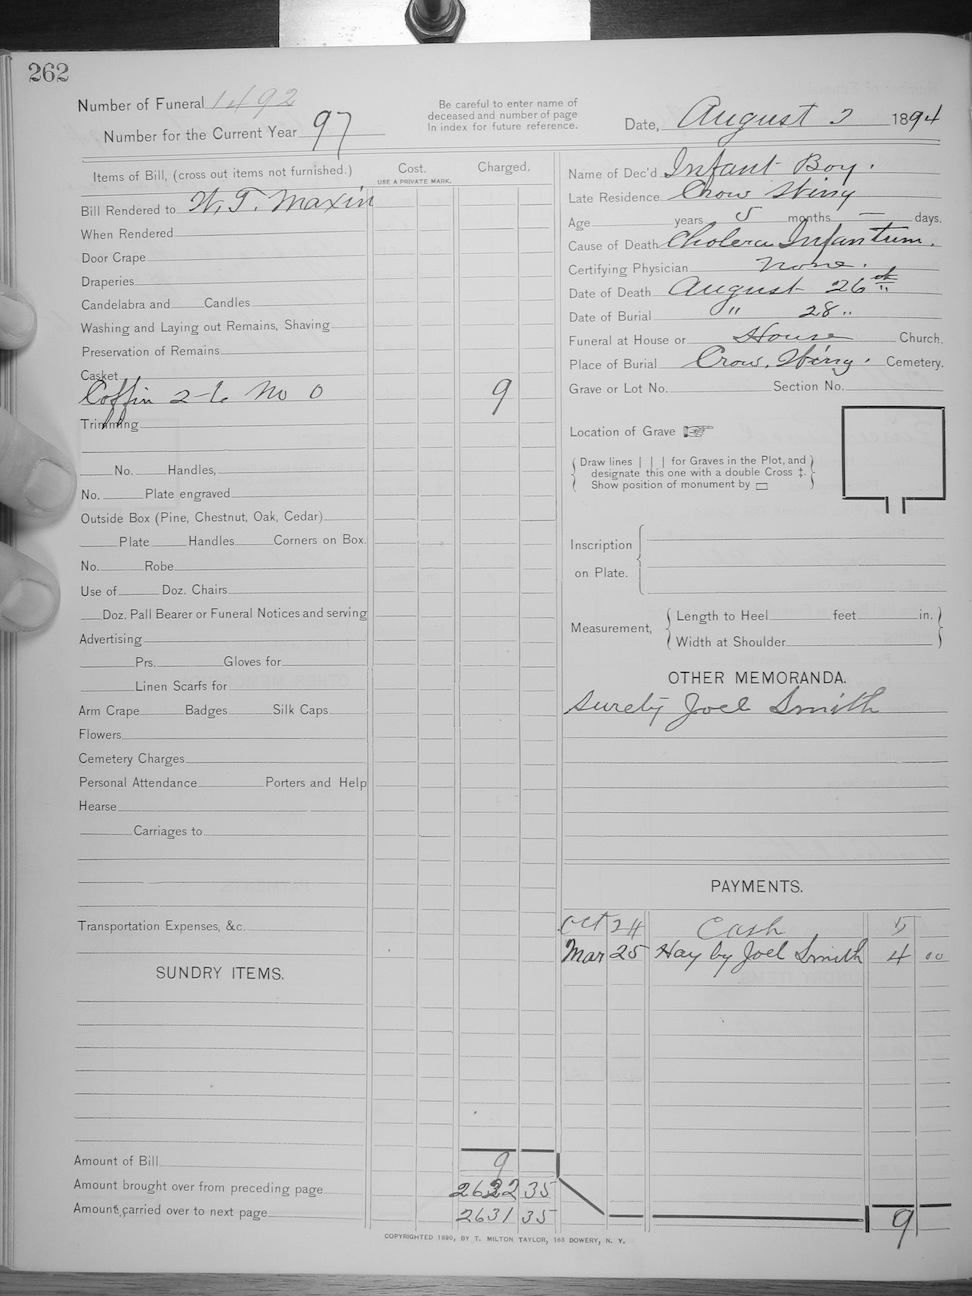 262
Number of Funeral 1492
Number for the Current Year 97
Be careful to enter name of
deceased and number of page
In index for future reference.
Date, August 1894
Items of Bill, (cross out items not furnished.)
Cost.
USE A PRIVATE MARK.
Charged.
Bill Rendered to W. T. Maxin
When Rendered
Door Crape
Draperies
Candelabra and Candles
Washing and Laying out Remains, Shaving
Preservation of Remains
Casket
Coffin 2-6 No 0 9
Trimming
No. Handles,
No. Plate engraved
Outside Box (Pine, Chestnut, Oak, Cedar)
Plate Handles Corners on Box.
No. Robe
Use of Doz. Chairs
Doz. Pall Bearer or Funeral Notices and serving
Advertising
Prs. Gloves for
Linen Scarfs for
Arm Crape Badges Silk Caps
Flowers
Cemetery Charges
Personal Attendance Porters and Help
Hearse
Carriages to
Transportation Expenses, &c.
SUNDRY ITEMS.
Amount of Bill 9
Amount brought over from preceding page 2622 35
Amount carried over to next page 2631 35
Name of Dec'd Infant Boy.
Late Residence Crow Wing
Age years 5 months — days.
Cause of Death Cholera Infantum.
Certifying Physician none.
Date of Death August 26th
Date of Burial " 28 "
Funeral at House or House Church.
Place of Burial Crow Wing. Cemetery.
Grave or Lot No. Section No.
Location of Grave
Draw lines | | | for Graves in the Plot, and
designate this one with a double Cross ‡.
Show position of monument by ▭
Inscription
on Plate.
Measurement,
Length to Heel feet in.
Width at Shoulder
OTHER MEMORANDA.
Surety Joel Smith
PAYMENTS.
Oct 24 Cash 5
Mar 25 Hay by Joel Smith 4 00
9
COPYRIGHTED 1890, BY T. MILTON TAYLOR, 163 BOWERY, N. Y.